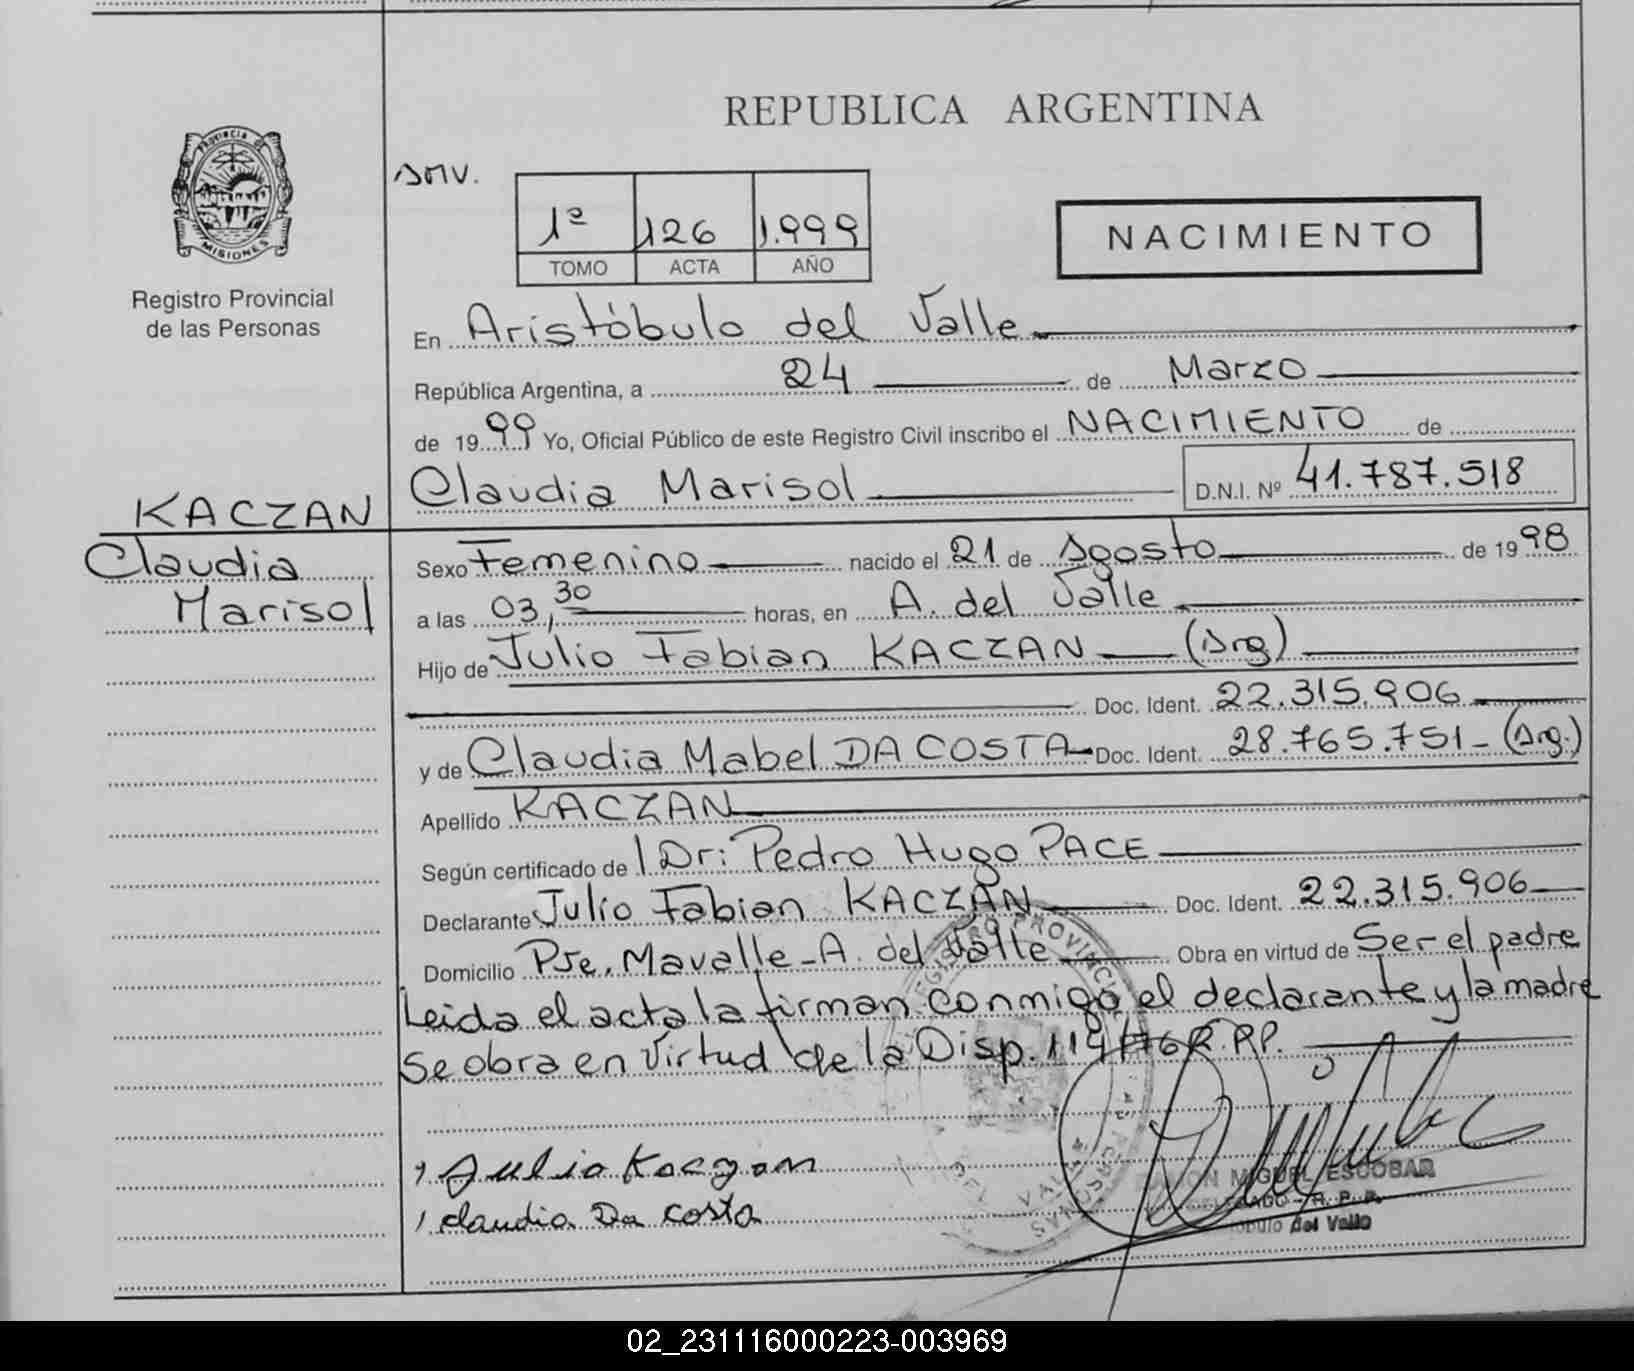 REPUBLICA ARGENTINA
PROVINCIA DE
MISIONES
Registro Provincial
de las Personas
SMV.
1ª 126 1.999
TOMO ACTA AÑO
NACIMIENTO
En Aristóbulo del Valle
República Argentina, a 24 de Marzo
de 1999 Yo, Oficial Público de este Registro Civil inscribo el NACIMIENTO de
Claudia Marisol D.N.I. Nº 41.787.518
KACZAN
Claudia
Marisol
Sexo Femenino nacido el 21 de Agosto de 1998
a las 03,30 horas, en A. del Valle
Hijo de Julio Fabian KACZAN (Arg)
Doc. Ident. 22.315.906
y de Claudia Mabel DA COSTA Doc. Ident. 28.765.751 - (Arg.)
Apellido KACZAN
Según certificado de Dr: Pedro Hugo PACE
Declarante Julio Fabian KACZAN Doc. Ident. 22.315.906
Domicilio Pje. Mavalle - A. del Valle Obra en virtud de Ser el padre
Leida el acta la firman conmigo el declarante y la madre
Se obra en virtud de la Disp. 114/76 R.P.P.
Julio Kaczan
Claudia Da Costa
MIGUEL ESCOBAR
DELEGADO - R. P. P.
del Valle
02_231116000223-003969